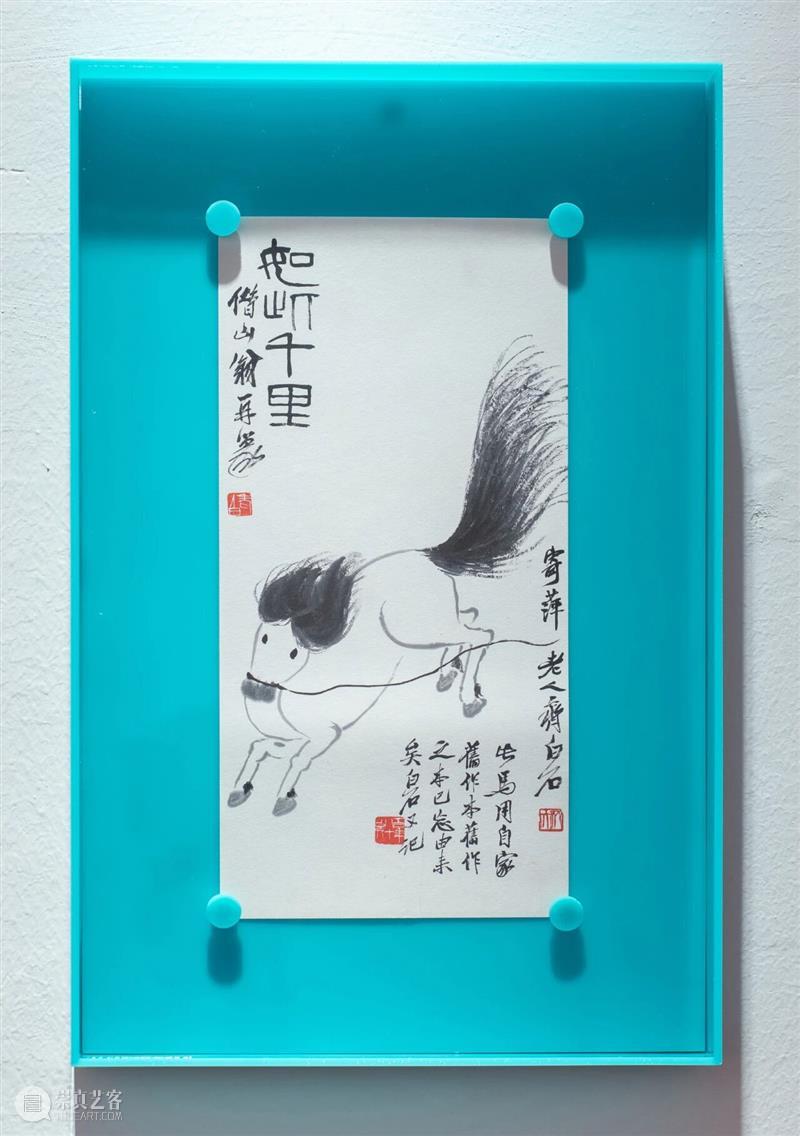 如此千里
借山翁再篆
寄萍老人齊白石
此馬用自家
舊作本舊作
之本已忘由來
矣白石又記
崇真艺客